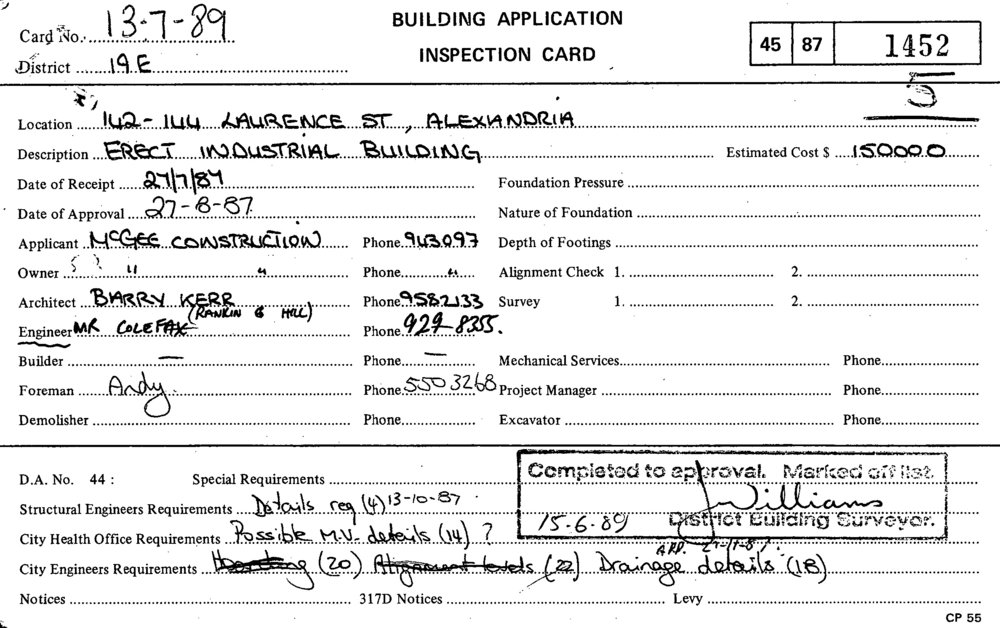 BUILDING APPLICATION
INSPECTION CARD
Card No. 13-7-89
District 19E
45 87 1452
5
Location 142-144 LAURENCE ST, ALEXANDRIA
Description ERECT INDUSTRIAL BUILDING Estimated Cost $ 150000
Date of Receipt 27/7/87 Foundation Pressure
Date of Approval 27-8-87 Nature of Foundation
Applicant McGEE CONSTRUCTION Phone 943097 Depth of Footings
Owner " " Phone " Alignment Check 1. 2.
Architect BARRY KERR Phone 9582133 Survey 1. 2.
(RANKIN & HILL)
Engineer MR COLEFAX Phone 929-8355.
Builder — Phone — Mechanical Services Phone
Foreman Andy. Phone 5503268 Project Manager Phone
Demolisher Phone Excavator Phone
D.A. No. 44 : Special Requirements
Completed to approval. Marked off list.
Structural Engineers Requirements Details req (4) 13-10-87
Williams
15-6-89 District Building Surveyor.
City Health Office Requirements Possible M.V. details (14) ?
APP. 27-11-87.
City Engineers Requirements (20) Alignment levels (22) Drainage details (18)
Notices 317D Notices Levy
CP 55